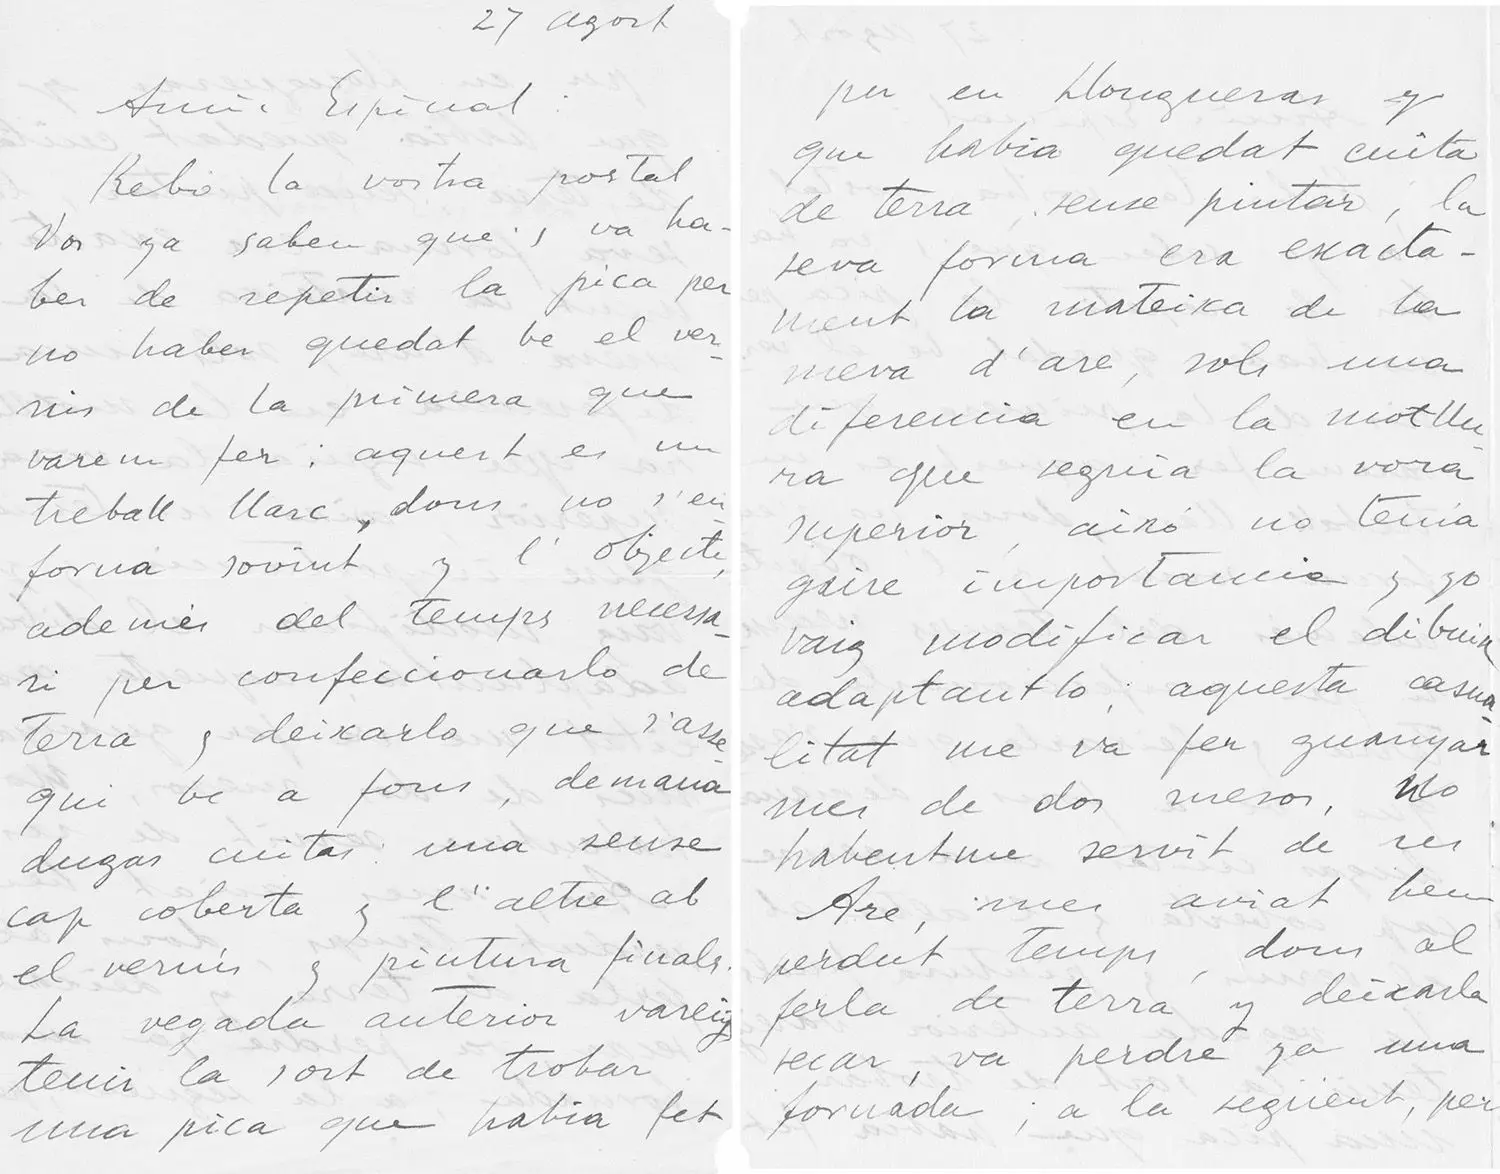 27 Agost
Amic Espinal:
Rebo la vostra postal
Vos ya sabeu que's va ha-
ber de repetir la pica per
no haber quedat be el ver-
nis de la primera que
varem fer; aquest es un
treball llarc, dons no s'en
forna sovint y l'objecte,
ademés del temps necessa-
ri per confeccionarlo de
terra y deixarlo que s'asse-
qui be a fons, demana
dugas cuitas: una sense
cap coberta y l'altre ab
el vernis y pintura finals.
La vegada anterior vareig
tenir la sort de trobar
una pica que habia fet
per en Llongueras y
que habia quedat cuita
de terra, sense pintar; la
seva forma era exacta-
ment la mateixa de la
meva d'are, sols una
diferencia en la motllu-
ra que seguia la vora
superior, aixó no tenia
gaire importancia y yo
vaig modificar el dibuix
adaptantlo; aquesta casua-
litat me va fer guanyar
mes de dos mesos, No
habentme servit de res
Are, mes aviat hem
perdut temps, dons al
ferla de terra y deixarla
secar, va perdre ya una
fornada; a la següent, per